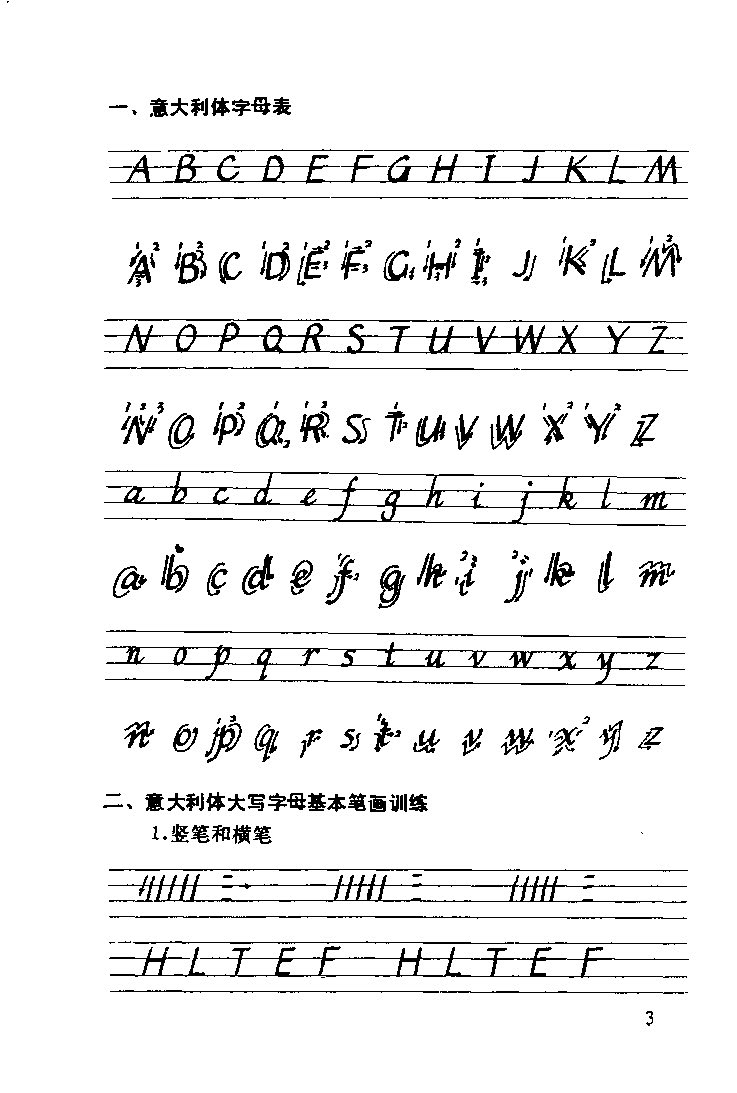 一、意大利体字母表
A B C D E F G H I J K L M
A B C D E F G H I J K L M
N O P Q R S T U V W X Y Z
N O P Q R S T U V W X Y Z
a b c d e f g h i j k l m
a b c d e f g h i j k l m
n o p q r s t u v w x y z
n o p q r s t u v w x y z
二、意大利体大写字母基本笔画训练
1.竖笔和横笔
H L T E F H L T E F
3